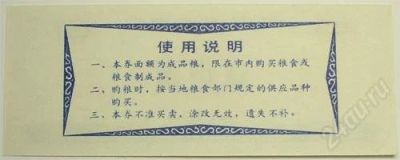 使用说明
一、本券面额为成品粮，限在市内购买粮食或
粮食制成品。
二、购粮时，按当地粮食部门规定的供应品种
购买。
三、本券不准买卖，涂改无效，遗失不补。
24au.ru